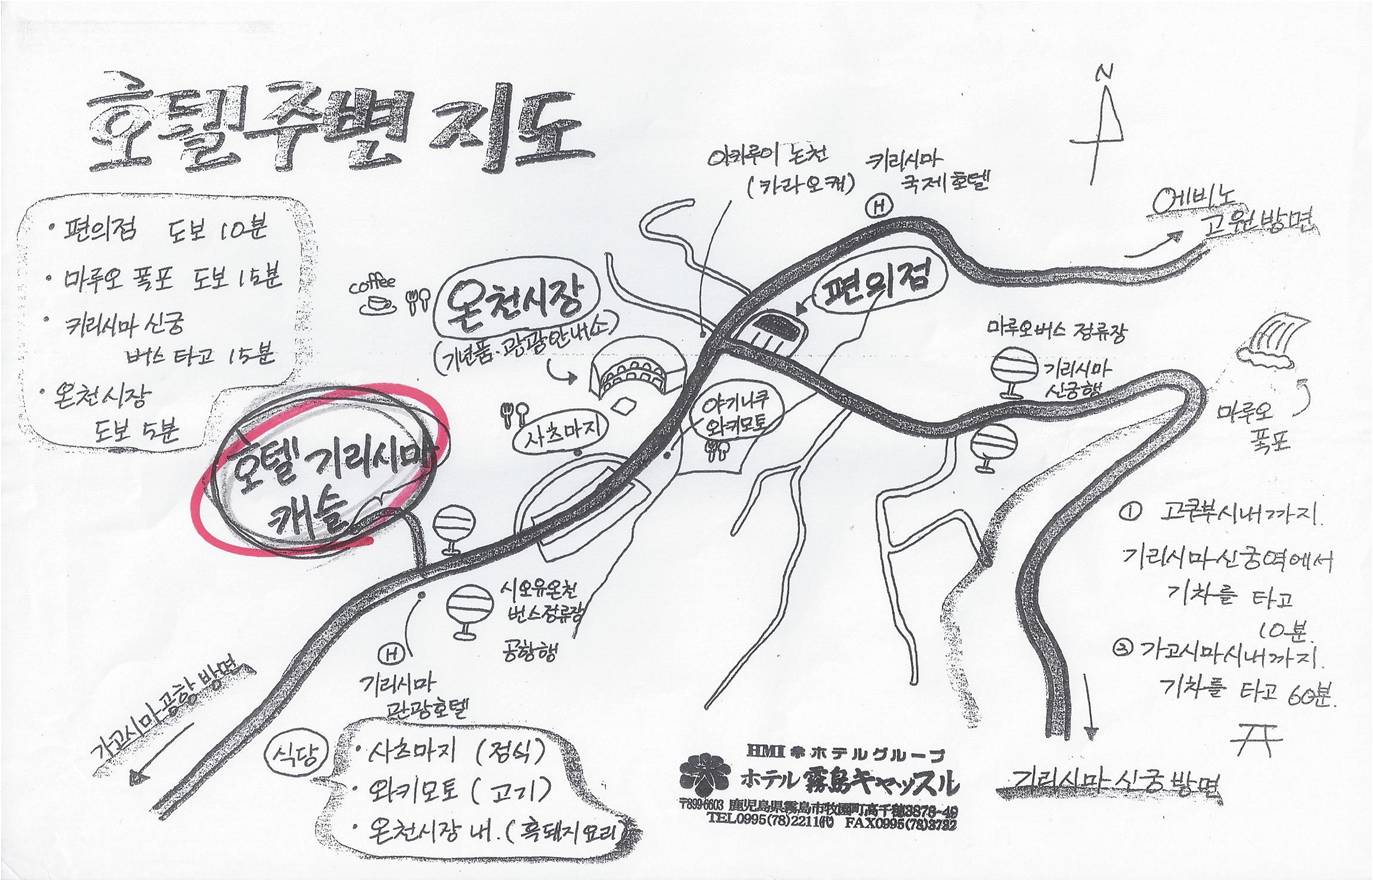 호텔주변 지도
• 편의점 도보 10분
• 마루오 폭포 도보 15분
• 키리시마 신궁
버스 타고 15분
• 온천시장
도보 5분
호텔 기리시마
캐슬
coffee
온천시장
(기념품·관광안내소)
사츠마지
야기니쿠
와키모토
아카루이 논천
(카라오케)
키리시마
국제호텔
H
편의점
N
에비노
고원방면
마루오버스 정류장
기리시마
신궁행
마루오
폭포
① 고쿠부시내까지.
기리시마신궁역에서
기차를 타고
10분.
② 가고시마시내까지.
기차를 타고 60분.
기리시마 신궁 방면
시오유온천
버스정류장
공항행
H
기리시마
관광호텔
가고시마공항 방면
식당
• 사츠마지 (정식)
• 와키모토 (고기)
• 온천시장 내. (흑돼지요리)
HMI ホテルグループ
ホテル 霧島キャッスル
〒899-6603 鹿児島県霧島市牧園町高千穂3878-49
TEL0995(78)2211代 FAX0995(78)3732